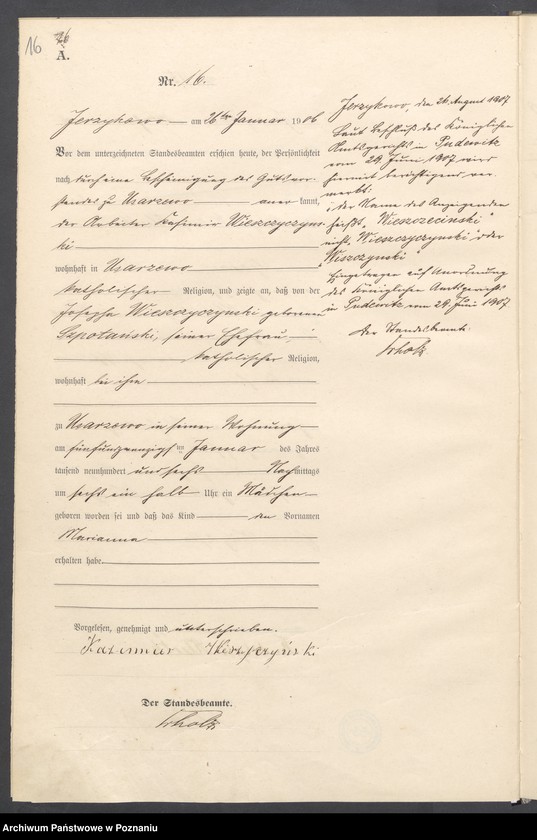 16
26
A.
Nr. 16.
Jerzykowo am 26ten Januar 1906
Vor dem unterzeichneten Standesbeamten erschien heute, der Persönlichkeit
nach durch eine Bescheinigung des Gutsvor-
standes zu Uzarzewo anerkannt,
der Arbeiter Kasimir Wieszczyczyns-
ki
wohnhaft in Uzarzewo
katholischer Religion, und zeigte an, daß von der
Josepha Wieszczyczynski geborenen
Szpotański, seiner Ehefrau,
katholischer Religion,
wohnhaft bei ihm
zu Uzarzewo in seiner Wohnung
am fünfundzwanzigsten Januar des Jahres
tausend neunhundert und sechs Nachmittags
um sechs ein halb Uhr ein Mädchen
geboren worden sei und daß das Kind den Vornamen
Marianna
erhalten habe.
Vorgelesen, genehmigt und unterschrieben.
Kazimier
Der Standesbeamte.
Scholz
Jerzykowo, den 26. August 1907
Laut Beschluß des Königlichen
Amtsgerichts in Pudewitz
vom 29. Juni 1907 wird
hiermit berichtigend ver-
merkt:
der Name des Anzeigenden
heißt "Wieszozeciński"
nicht "Wieszczyczynski" oder
"Wiszczynski"
Eingetragen auf Anordnung
des Königlichen Amtsgerichts
in Pudewitz vom 29. Juni 1907
Der Standesbeamte
Scholz
Archiwum Państwowe w Poznaniu